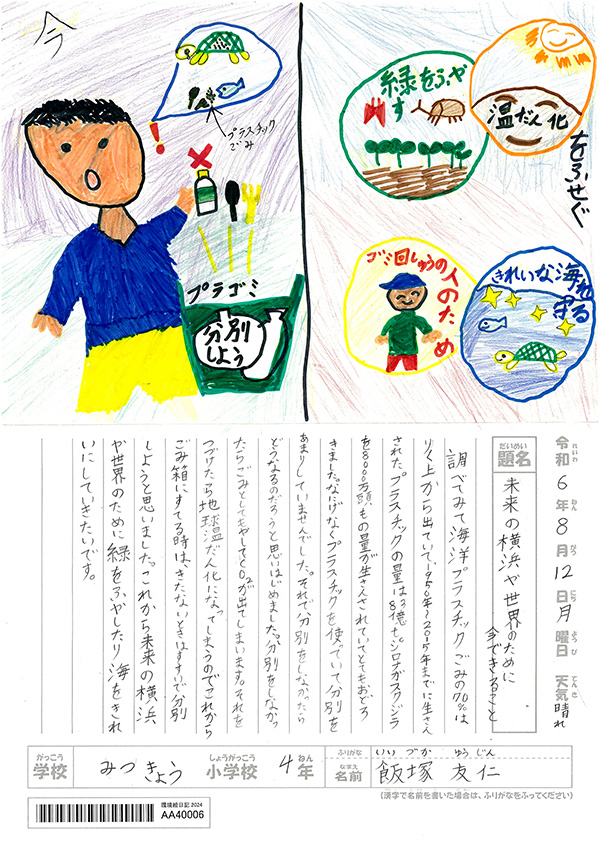 今
プラスチック
ごみ
プラゴミ
分別
しよう
緑をふやす
温だん化
をふせぐ
ゴミ回しゅうの人のため
きれいな海を守る
令和6年8月12日月曜日 天気 晴れ
れいわ ねん がつ にち ようび てんき
だいめい
題名
未来の横浜や世界のために
今できること
調べてみて海洋プラスチックごみの70%は
りく上から出ていて1950年~2015年までに生さん
されたプラスチックの量は83億tとシロナガスクジラ
を8000万頭もの量が生さんされていてとてもおどろ
きました。なにげなくプラスチックを使っていて分別を
あまりしていませんでした。それで、分別をしなかったら
どうなるのだろうと思いはじめました。分別をしなかっ
たらごみとしてもやしてCO2が出てしまいます。それを
つづけたら地球温だん化になってしまうのでこれから
ごみ箱にすてる時は、きたないときはすすいで分別
しようと思いました。これから未来の横浜
や世界のために緑をふやしたり海をきれ
いにしていきたいです。
がっこう しょうがっこう ねん ふりがな いいづか ゆうじん
学校 みつきょう 小学校 4年 なまえ 名前 飯塚 友仁
(漢字で名前を書いた場合は、ふりがなをふってください)
環境絵日記 2024
AA40006